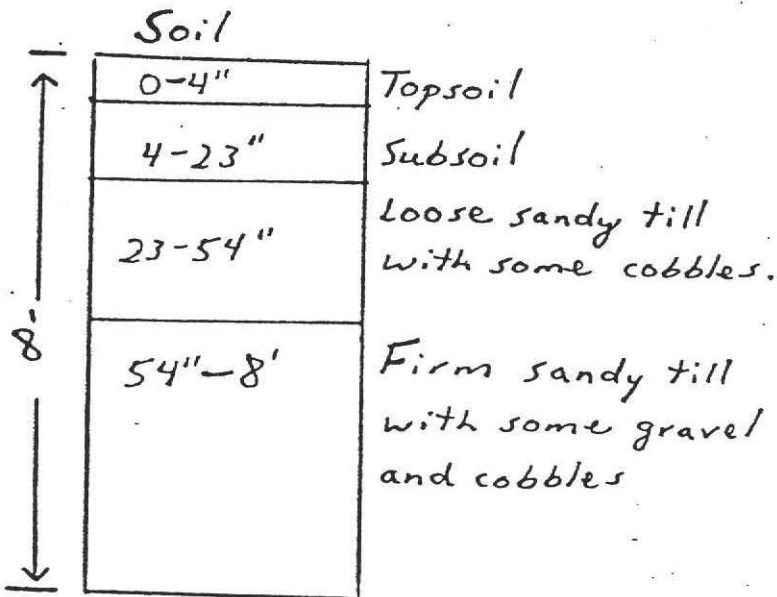 Soil
0-4" Topsoil
4-23" Subsoil
23-54" Loose sandy till
with some cobbles.
8'
54"-8' Firm sandy till
with some gravel
and cobbles